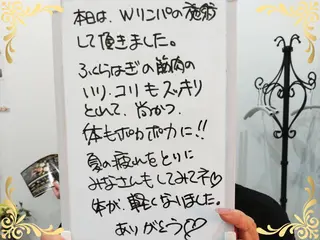 本日は、Wリンパの施術
して頂きました。
ふくらはぎの筋肉の
ハリ、コリもスッキリ
とれて、尚かつ、
体もポカポカに!!
夏の疲れをとりに
みなさんもしてみてネ♡
体が、軽くなりました。
ありがとう♡